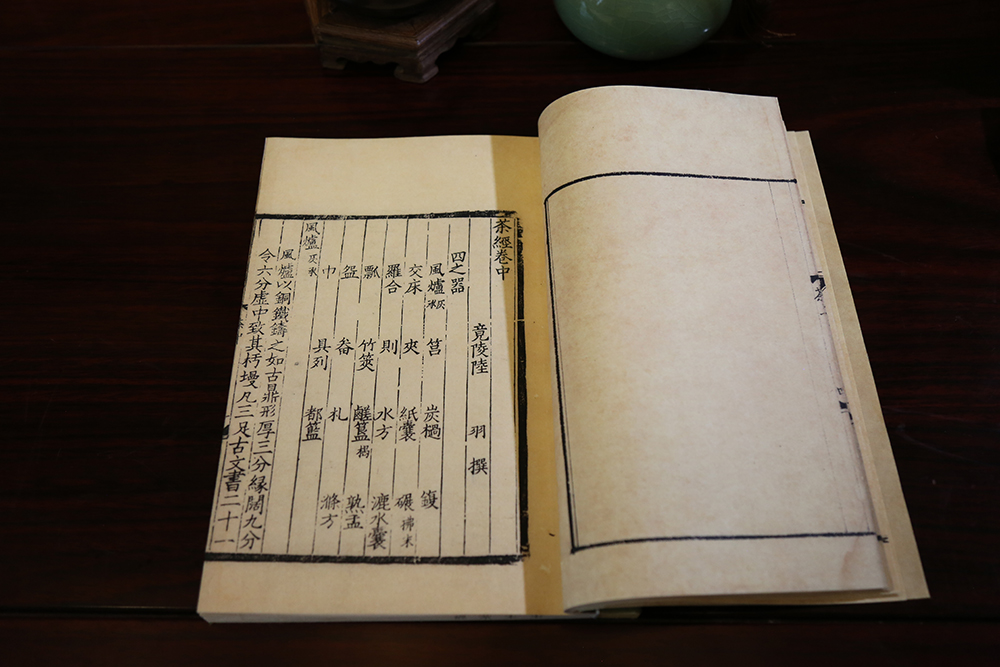 茶經卷中
竟陵陸 羽 撰
四之器
風爐灰承 筥 炭檛 鍑
交床 夾 紙囊 碾拂末
羅合 則 水方 漉水囊
瓢 竹筴 鹺簋揭 熟盂
盌 畚 札 滌方
巾 具列 都籃
風爐灰承
風爐以銅鐵鑄之如古鼎形厚三分緣闊九分
令六分虛中致其杇墁凡三足古文書二十一